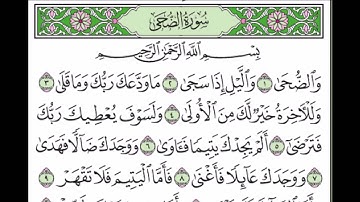 سُورَةُ الضُّحَىٰ
بِسْمِ اللَّهِ الرَّحْمَٰنِ الرَّحِيمِ
وَالضُّحَىٰ ١ وَاللَّيْلِ إِذَا سَجَىٰ ٢ مَا وَدَّعَكَ رَبُّكَ وَمَا قَلَىٰ ٣
وَلَلْآخِرَةُ خَيْرٌ لَّكَ مِنَ الْأُولَىٰ ٤ وَلَسَوْفَ يُعْطِيكَ رَبُّكَ
فَتَرْضَىٰ ٥ أَلَمْ يَجِدْكَ يَتِيمًا فَآوَىٰ ٦ وَوَجَدَكَ ضَالًّا فَهَدَىٰ
٧ وَوَجَدَكَ عَائِلًا فَأَغْنَىٰ ٨ فَأَمَّا الْيَتِيمَ فَلَا تَقْهَرْ ٩